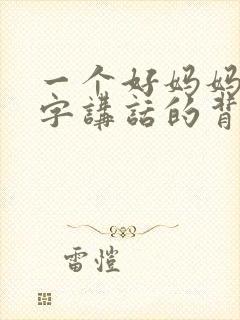 一个好妈妈
字讲話的背
雷愷